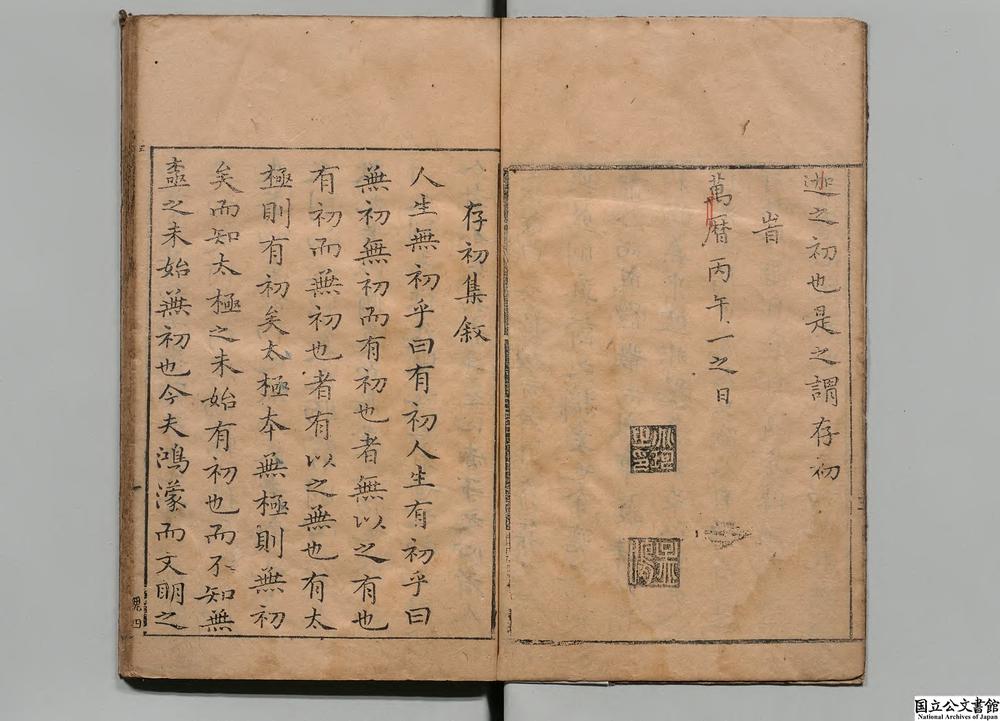 迦之初也是之謂存初
旹
萬曆丙午一之日
存初集敘
人生無初乎曰有初人生有初乎曰
無初無初而有初也者無以之有也
有初而無初也者有以之無也有太
極則有初矣太極本無極則無初
矣而知太極之未始有初也而不知無
極之未始無初也今夫鴻濛而文明之
一
国立公文書館
National Archives of Japan